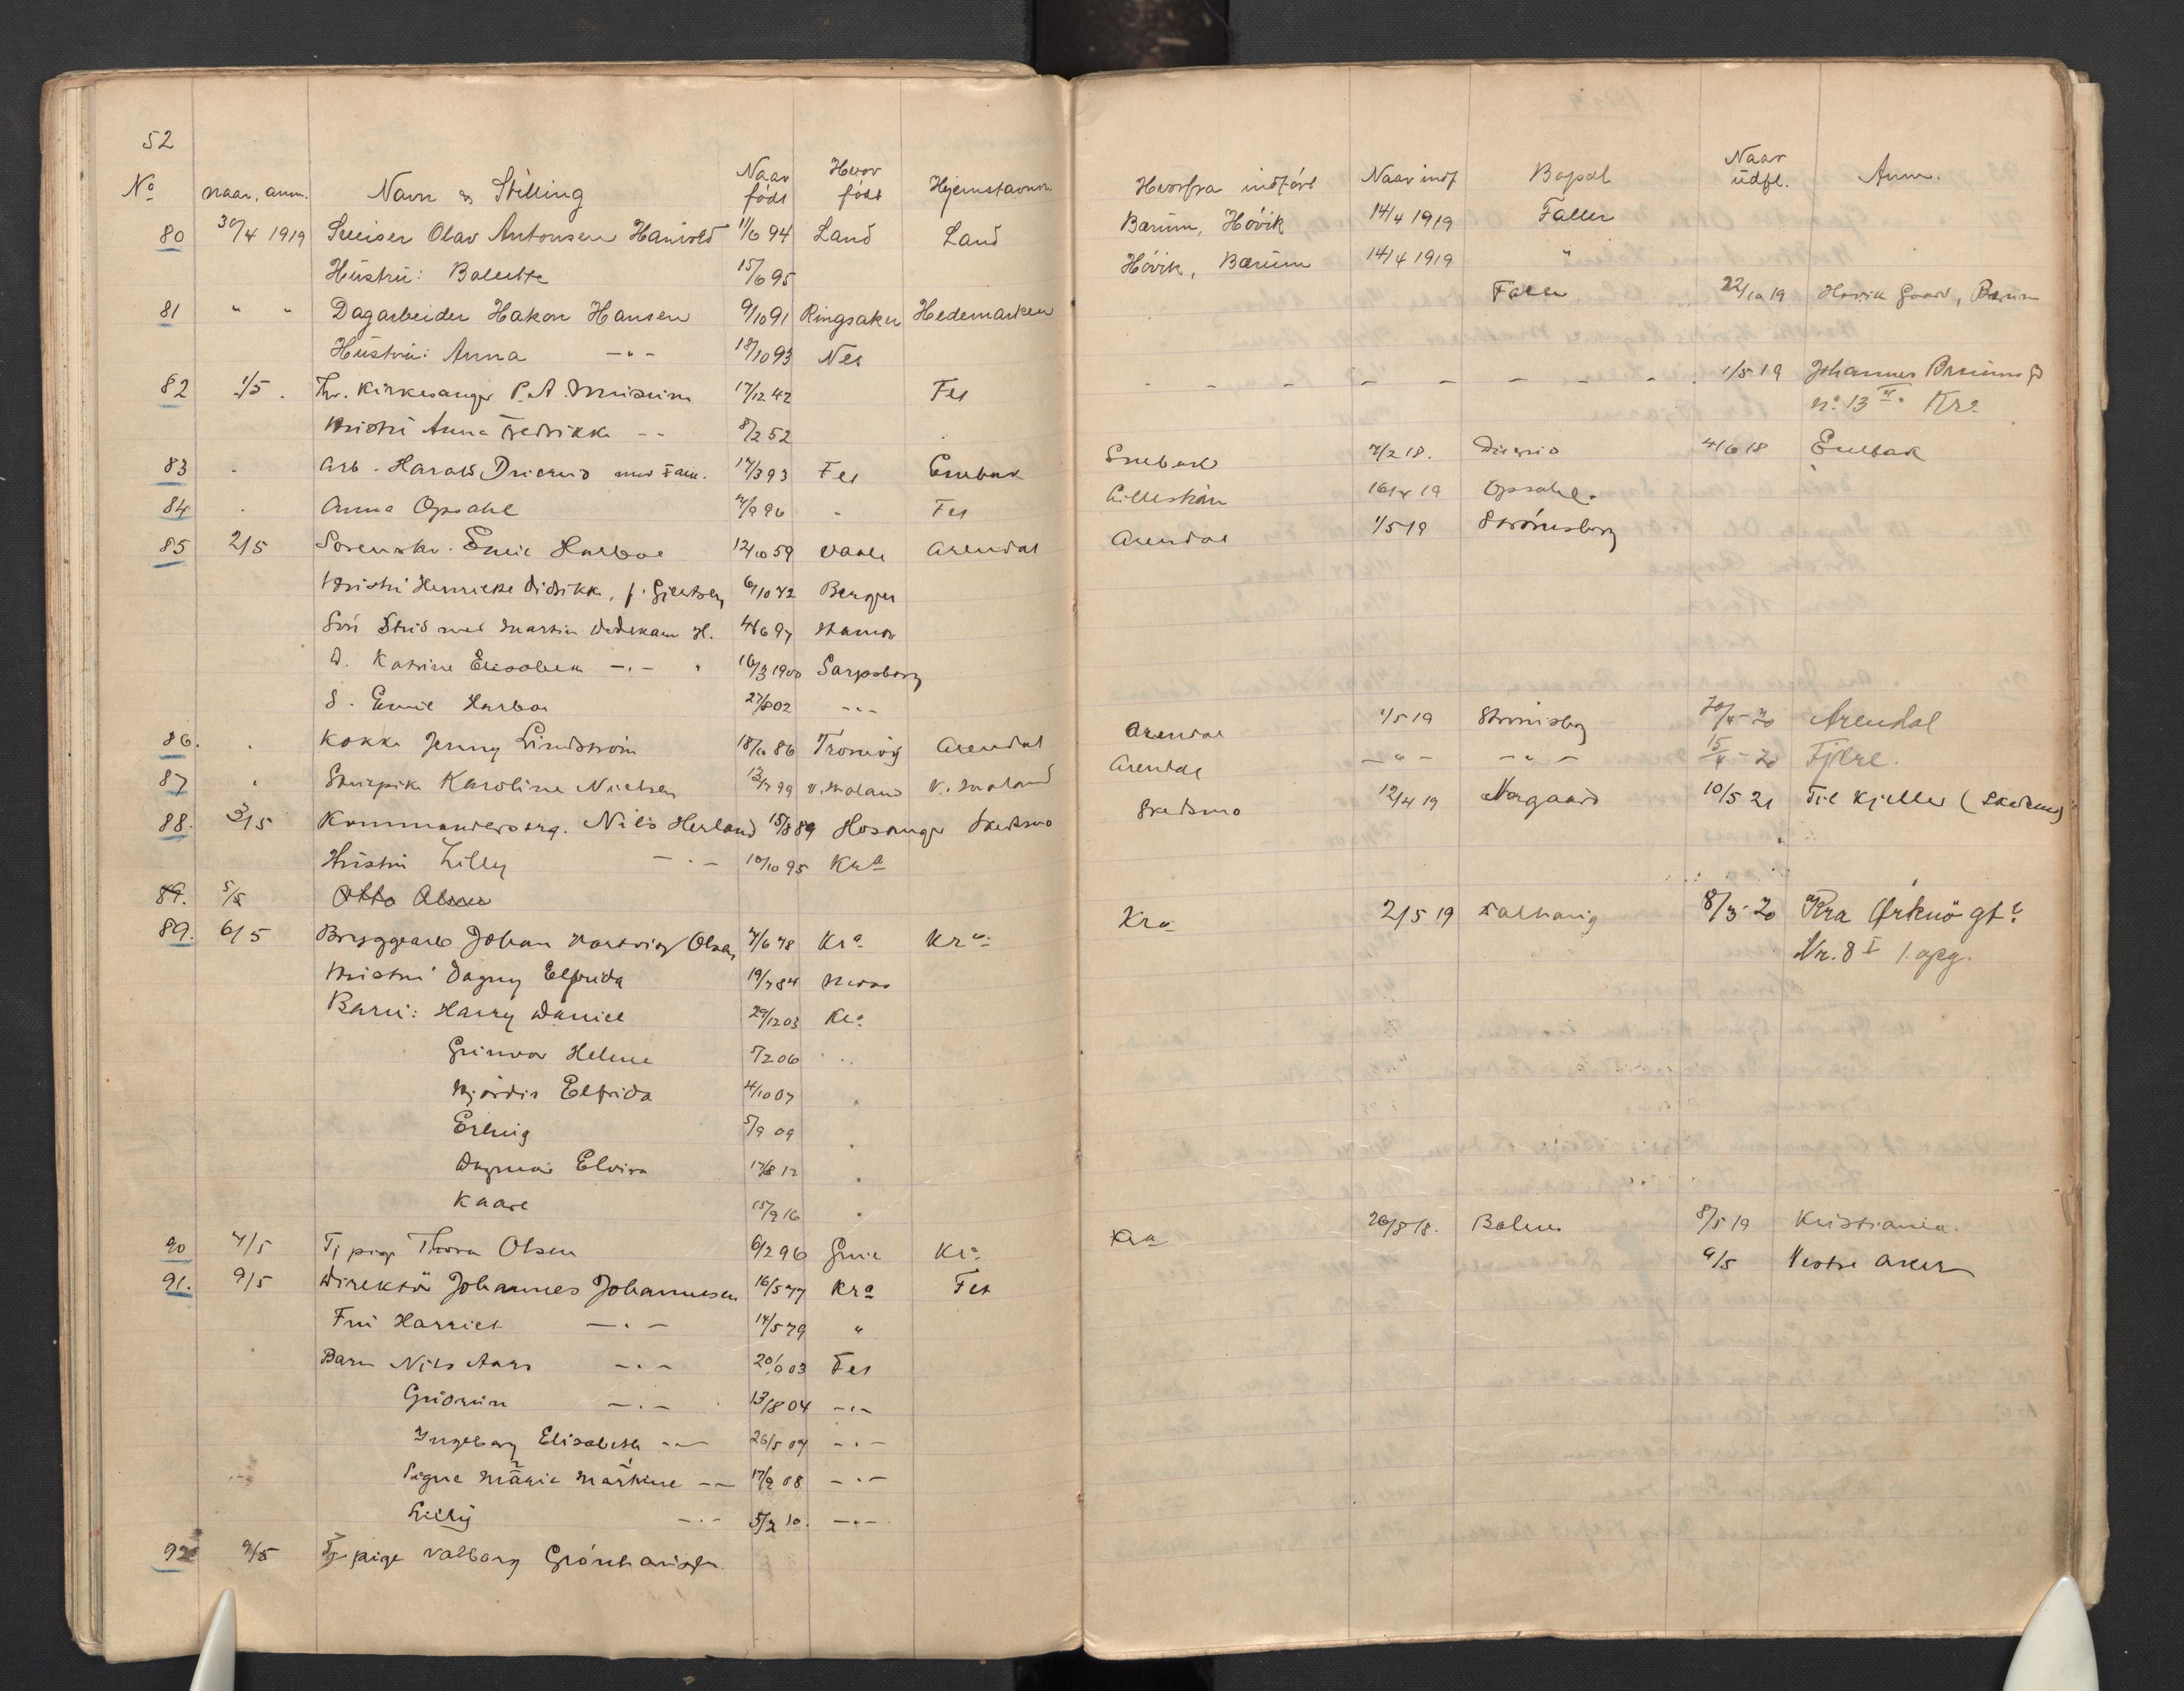 52
No Naar anm. Navn og Stilling Naar født Hvor født Hjemstavn
80 30/4 1919 Olav Antonsen 11/6 94 Land Land
Hustru: 15/6 95
81 " " Dagarbeider Hakon Hansen 9/10 91 Ringsaker Hedemarken
Hustru: Anna -"- 18/10 93 Nes
82 1/5 . Kirkesanger P. A. 17/12 42 Fet
Hustru Anna Fredrikke - - 8/2 52
83 . Arb. Harald med Fam. 17/3 93 Fet Enebak
84 . Anna Opsahl 96 " Fet
85 2/5 Sorenskr. Emil Harboe 12/10 59 Vaale Arendal
Hustru Henriette Didrikke, f. Gjertsen 6/10 72 Bergen
Sön Stud med Martin H. 4/6 97 Hamar
D. Katrine Elisabeth -.- " 16/3 1900 Sarpsborg
S. Emil Harboe 27/8 02 - - -
86. . Kokke Jenny Lindström 18/10 86 Tromöy Arendal
87 . Stuepike Karoline Nielsen 99 V. Moland V. Moland
88. 3/5 Kommandersarg. Nils Herland 15/8 89 Hosanger Skedsmo
Hustru Lilly - . - 10/10 95 Kra
89. 5/5 Otto
89. 6/5 Bryggearb Johan Hartvig Olsen 7/6 78 Kra Kra
Hustru Dagny Elfrida 19/7 84 Moss
Barn: Harry Daniel 29/12 03 Kra
Gunvor Helene 5/2 06 . .
Hjördis Elfrida 4/10 07 "
Erling 5/9 09 "
Dagmar Elvira 17/8 12 "
Kaare 15/9 16 "
90 7/5 Tj pige Thora Olsen 6/2 96 Grue Kra
91. 9/5 Direktör Johannes Johannesen 16/5 77 Kra Fet
Fru Harriet - . - 14/5 79 "
Barn Nils Aars - . - 20/9 03 Fet
Gudrun - . - 13/8 04 - . -
Ingeborg Elisabeth - . - 26/5 07 - . -
Signe Marie Martine - - 17/9 08 - . -
Lilly - . - 5/2 10. - . -
92 9/5 Tj pige Valborg
Hvorfra indflyt Naar indf Bopæl Naar udfl. Anm.
Bærum, Hövik 14/4 1919 Faller
Hövik, Bærum 14/4 1919 "
Faller 22/10 19 Hövik Gaard, Bærum
- - - - - - - - - 1/5 19 Johannes Bruuns G
no. 13 Kra
Enebak 7/2 18. 4/6 18 Enebak
Lilleström 16/4 19 Opsahl.
Arendal 1/5 19 Strömsborg
Arendal 1/5 19 Strömsborg 20/4-20 Arendal
Arendal - " - - " - 15/4-20 Fjære.
Skedsmo 12/4 19 Norgaard 10/5 21 Til Kjeller (Skedsmo)
Kra 2/5 19 8/3-20 Kra Örknö gt.
Nr. 8 I 1. opg.
Kra 26/8 18. 8/5 19 Kristiania.
9/5 Vestre Aker